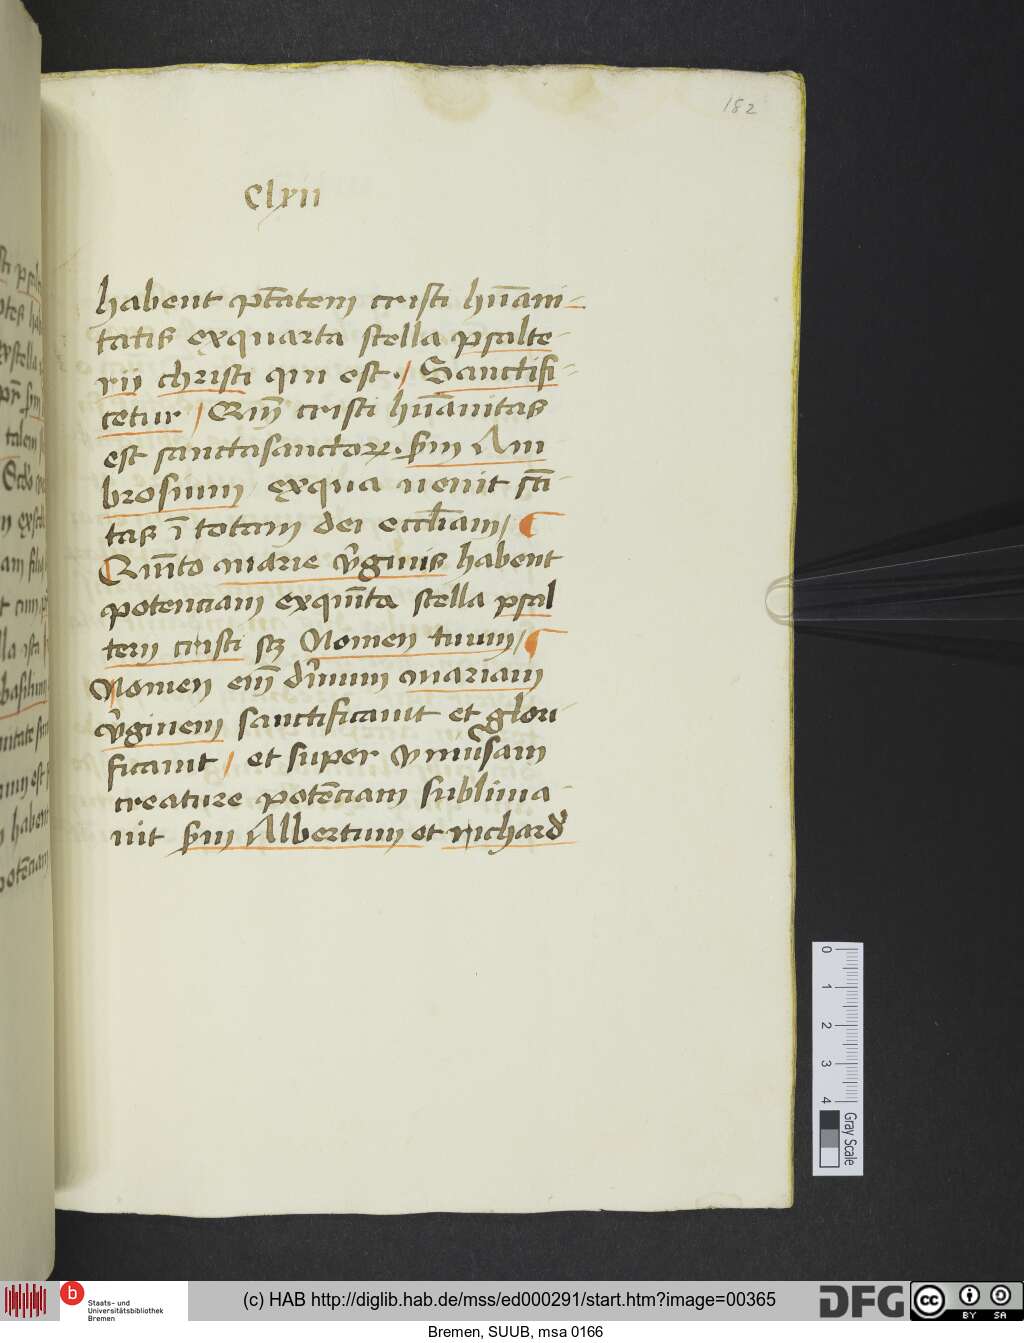 182
Clxii
habent ptātem cristi hūani-
tatis exquarta stella psalte-
rij christi qui est. / Sanctifi-
cetur / Qm̄ cristi hūanitas
est sanctasanctorꝝ. scd̄m Am
brosium exqua uenit scī-
tas ī totam dei eccl̄iam /
Quīto marie v̄ginis habent
potenciam exquīta stella psal
terij cristi scꝫ Nomen tuum /
Nomen em̄ diuīnum mariam
v̄ginem sanctificauit et glori-
ficauit / et super vniūsam
creature potēciam sublima-
uit scd̄m Albertum et richard
0 1 2 3 4
Gray Scale
b
Staats- und
Universitätsbibliothek
Bremen
(c) HAB http://diglib.hab.de/mss/ed000291/start.htm?image=00365
DFG
cc BY SA
Bremen, SUUB, msa 0166